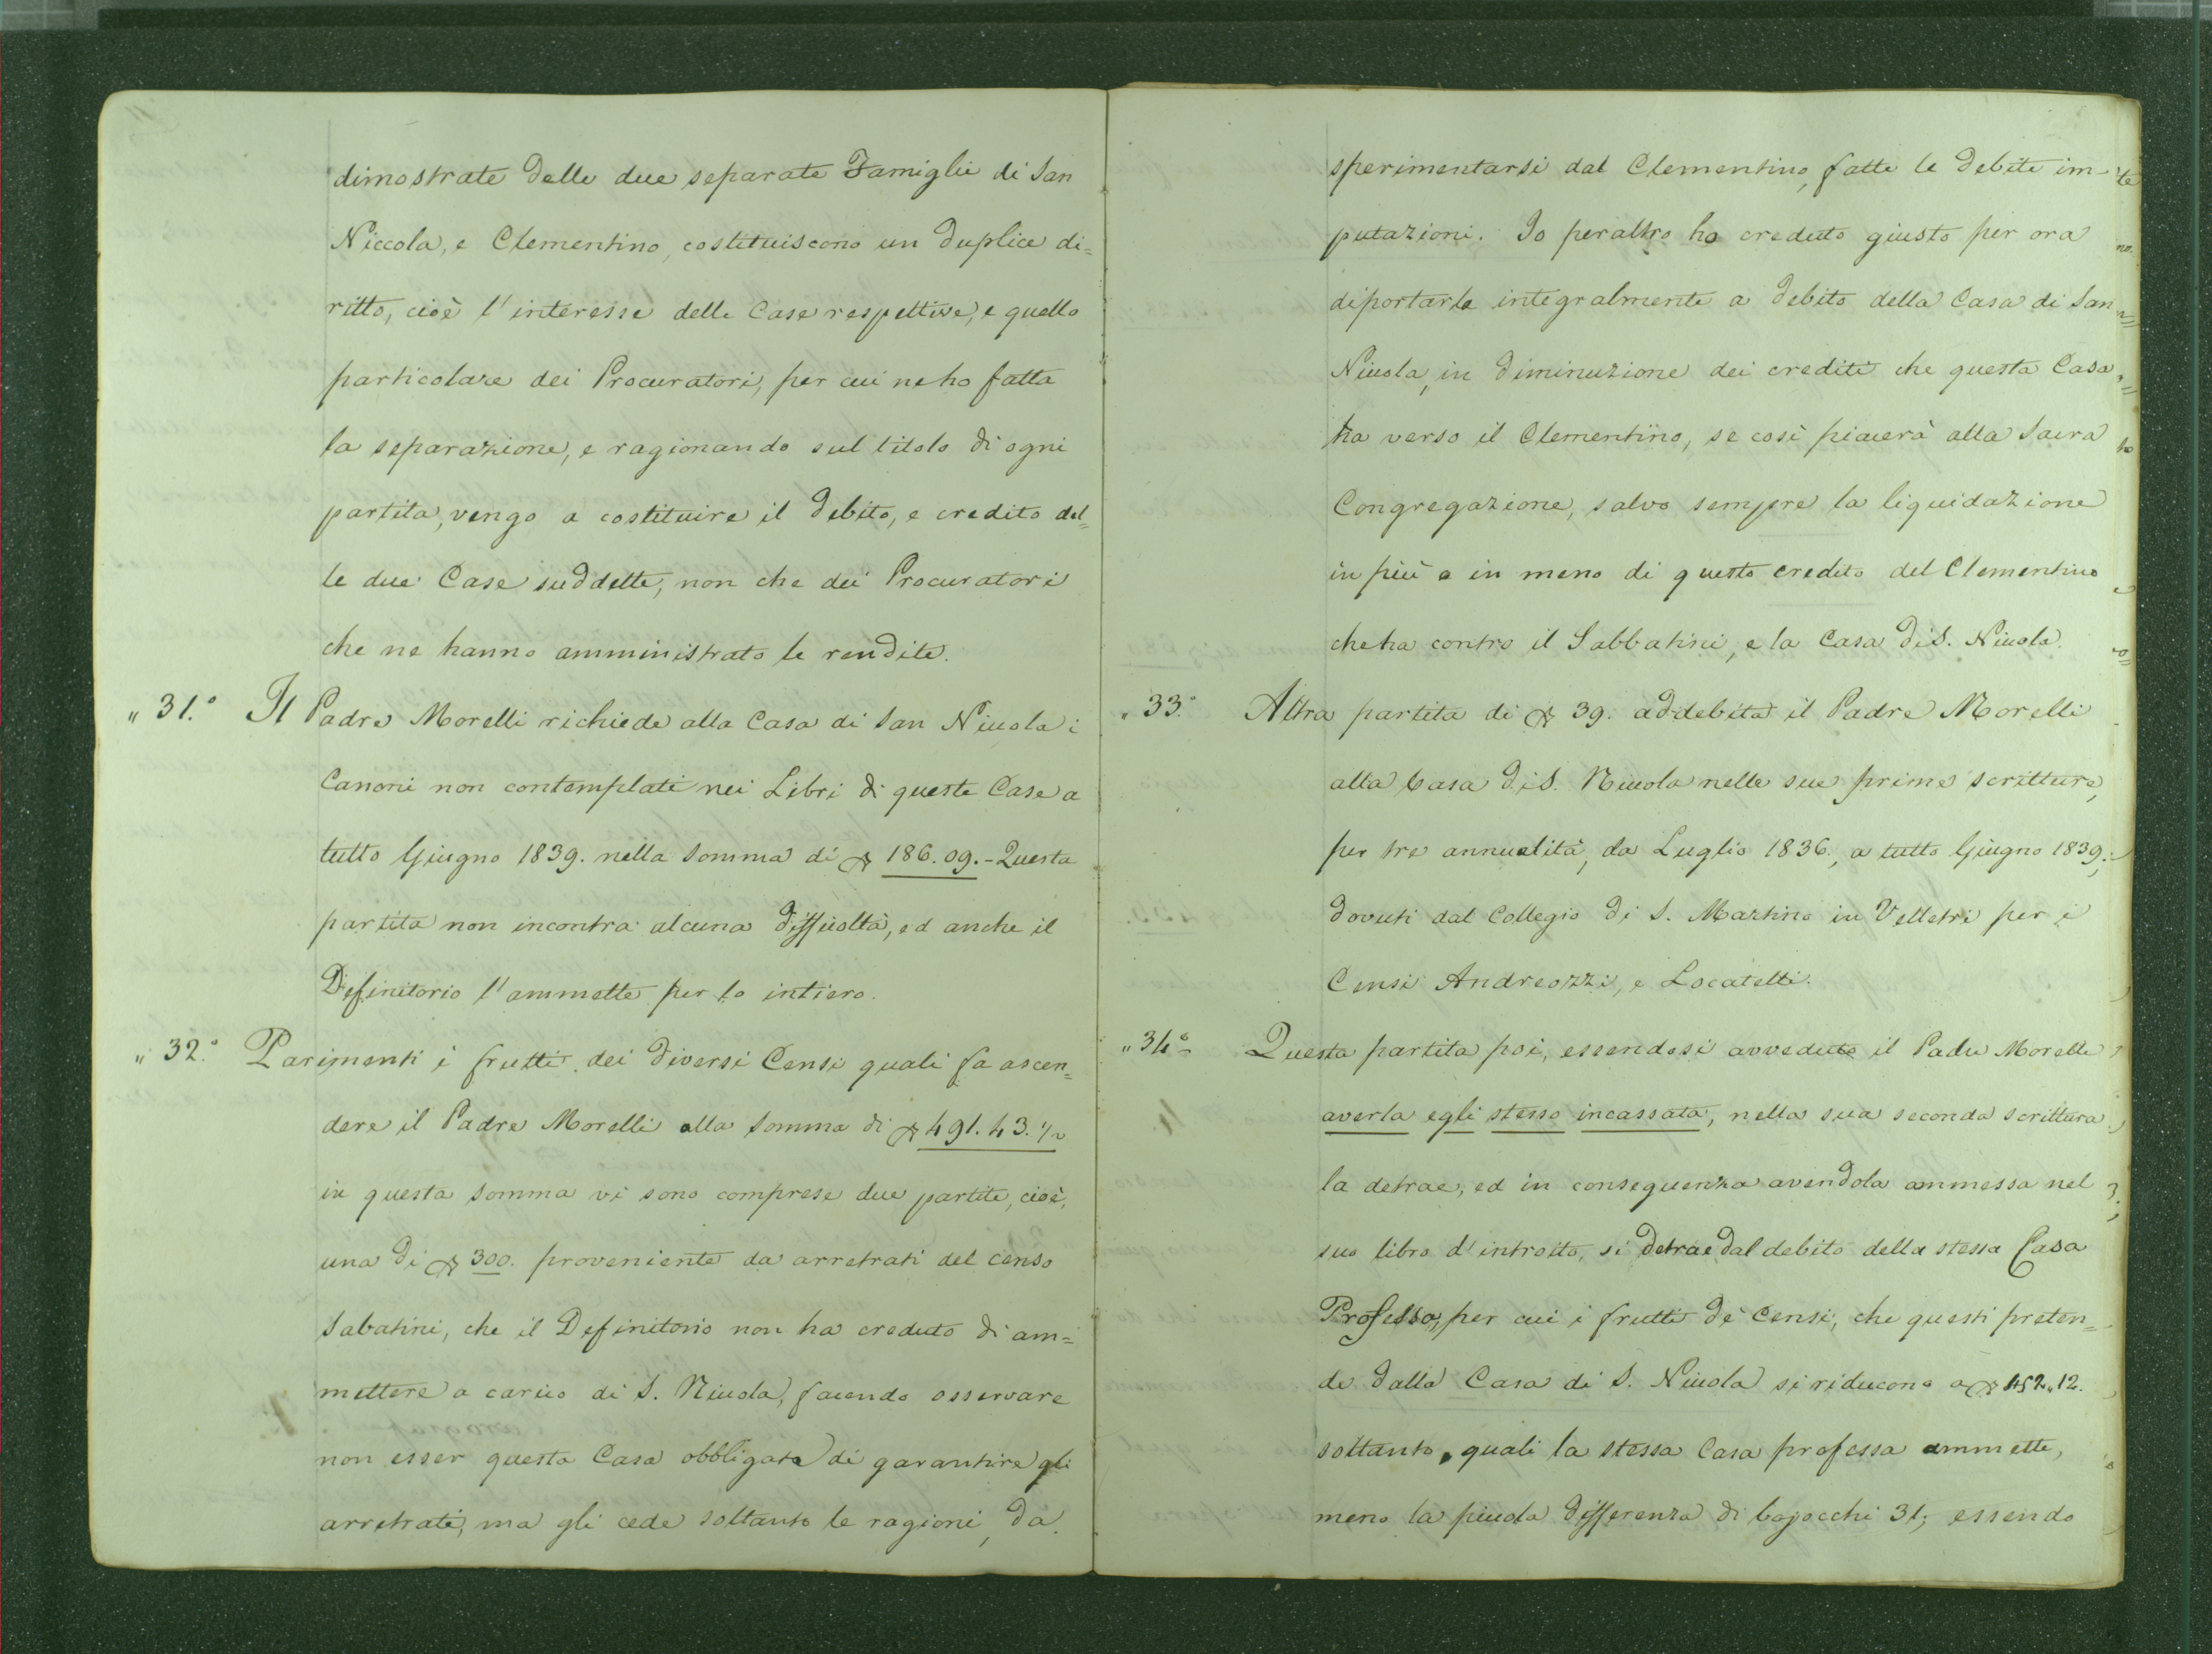 dimostrate delle due separate Famiglie di San
Niccola, e Clementino, costituiscono un duplice di=
ritto, cioè l'interesse delle Case respettive, e quello
particolare dei Procuratori, per cui ne ho fatta
la separazione, e ragionando sul titolo di ogni
partita, vengo a costituire il debito, e credito del=
le due Case suddette, non che dei Procuratori
che ne hanno amministrato le rendite.
„ 31.° Il Padre Morelli richiede alla Casa di San Niccola i
Canoni non contemplati nei Libri di queste Case a
tutto Giugno 1839. nella somma di ∇ 186.09.- Questa
partita non incontra alcuna difficoltà, ed anche il
Definitorio l'ammette per lo intiero.
„ 32.° Parimenti i frutti dei diversi Censi quali fa ascen=
dere il Padre Morelli alla somma di ∇ 491.43.½
in questa somma vi sono comprese due partite, cioè,
una di ∇ 300. proveniente da arretrati del censo
Sabatini, che il Definitorio non ha creduto di am=
mettere a carico di S. Niccola, facendo osservare
non esser questa Casa obbligata di garantire gli
arretrati, ma gli cede soltanto le ragioni, da
sperimentarsi dal Clementino, fatte le debite im-
putazioni. Io peraltro ho creduto giusto per ora
di portarla integralmente a debito della Casa di San
Niccola, in diminuzione dei crediti che questa Casa
ha verso il Clementino, se così piacerà alla Sacra
Congregazione, salvo sempre la liquidazione
in più o in meno di questo credito del Clementino
che ha contro il Sabbatini, e la Casa di S. Niccola.
„ 33.° Altra partita di ∇ 39. addebita il Padre Morelli
alla Casa di S. Niccola nelle sue prime scritture,
per tre annualità, da Luglio 1836., a tutto Giugno 1839.,
dovuti dal Collegio di S. Martino in Velletri per i
Censi Andreozzi, e Locatelli.
„ 34.° Questa partita poi, essendosi avveduto il Padre Morelli
averla egli stesso incassata, nella sua seconda scrittura
la detrae, ed in conseguenza avendola ammessa nel
suo libro d'introito, si detrae dal debito della stessa Casa
Professa, per cui i frutti de' Censi, che questi preten=
de dalla Casa di S. Niccola si riducono a ∇ 452„12.
soltanto, quali la stessa Casa professa ammette,
meno la piccola differenza di bajocchi 31; essendo